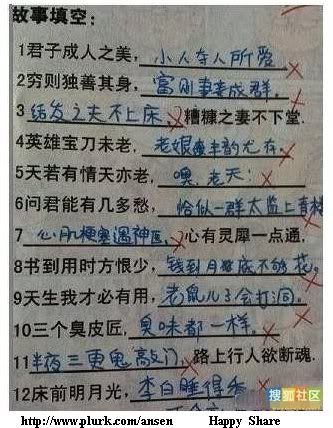 故事填空：
1君子成人之美，小人夺人所爱
2穷则独善其身，富则妻妾成群，
3结发之夫不上床，糟糠之妻不下堂.
4英雄宝刀未老，老娘风韵尤存，
5天若有情天亦老，噢，老天！
6问君能有几多愁，恰似一群太监上青楼
7心肌梗塞遇神医，心有灵犀一点通，
8书到用时方恨少，钱到月底不够花。
9天生我才必有用，老鼠儿子会打洞.
10三个臭皮匠，臭味都一样。
11半夜三更鬼敲门，路上行人欲断魂.
12床前明月光，李白睡得香
搜狐社区
http://www.plurk.com/ansen Happy Share